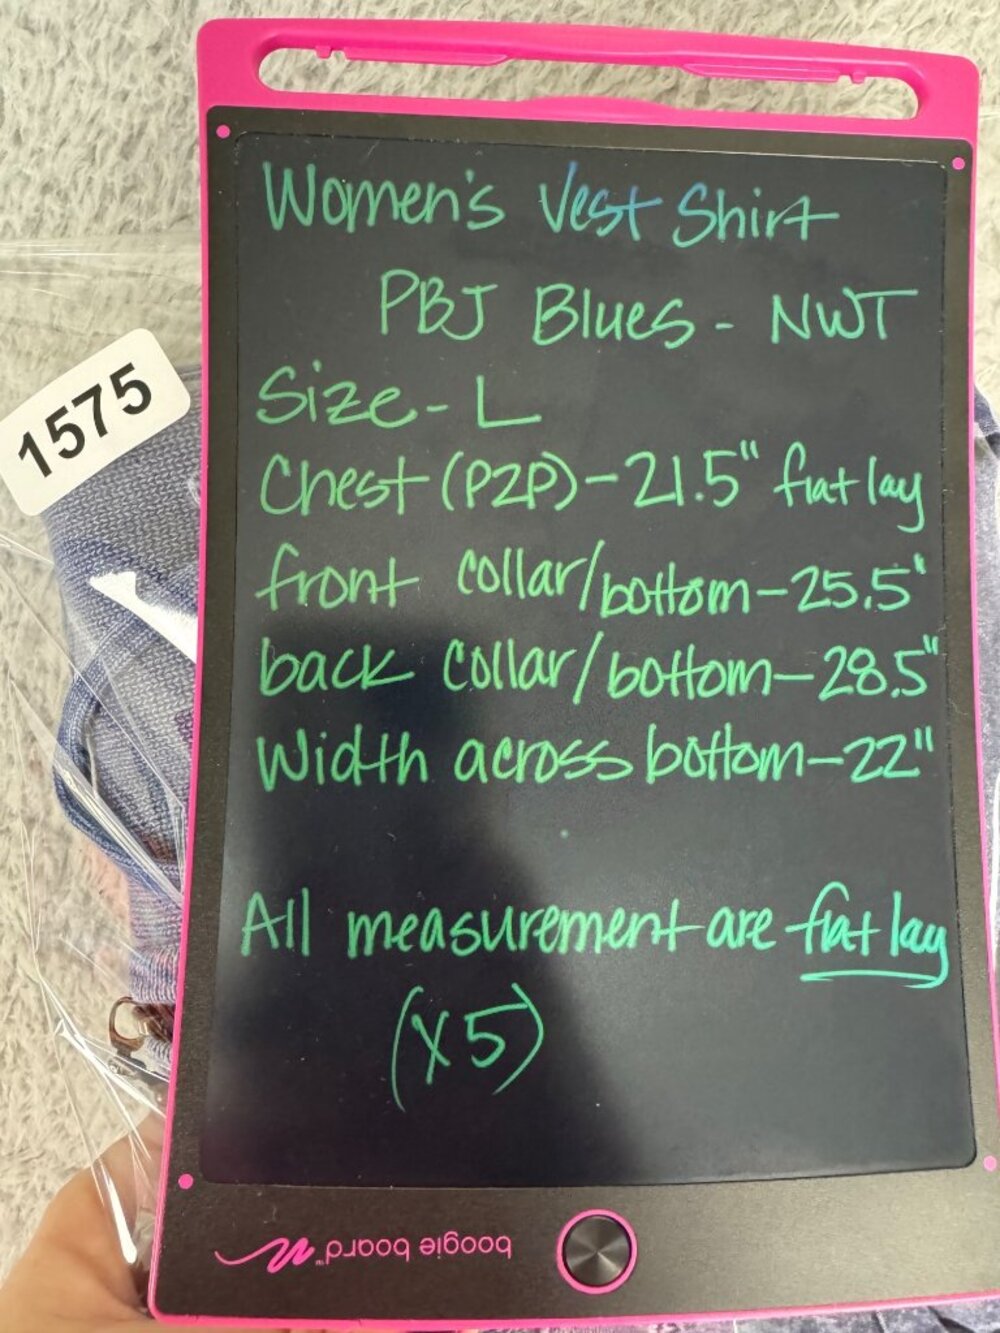 Women's Vest Shirt
PBJ Blues - NWT
Size - L
Chest (P2P) - 21.5" flat lay
front collar/bottom - 25.5"
back collar/bottom - 28.5"
Width across bottom - 22"
All measurement are flat lay
(X5)
1575
boogie board™